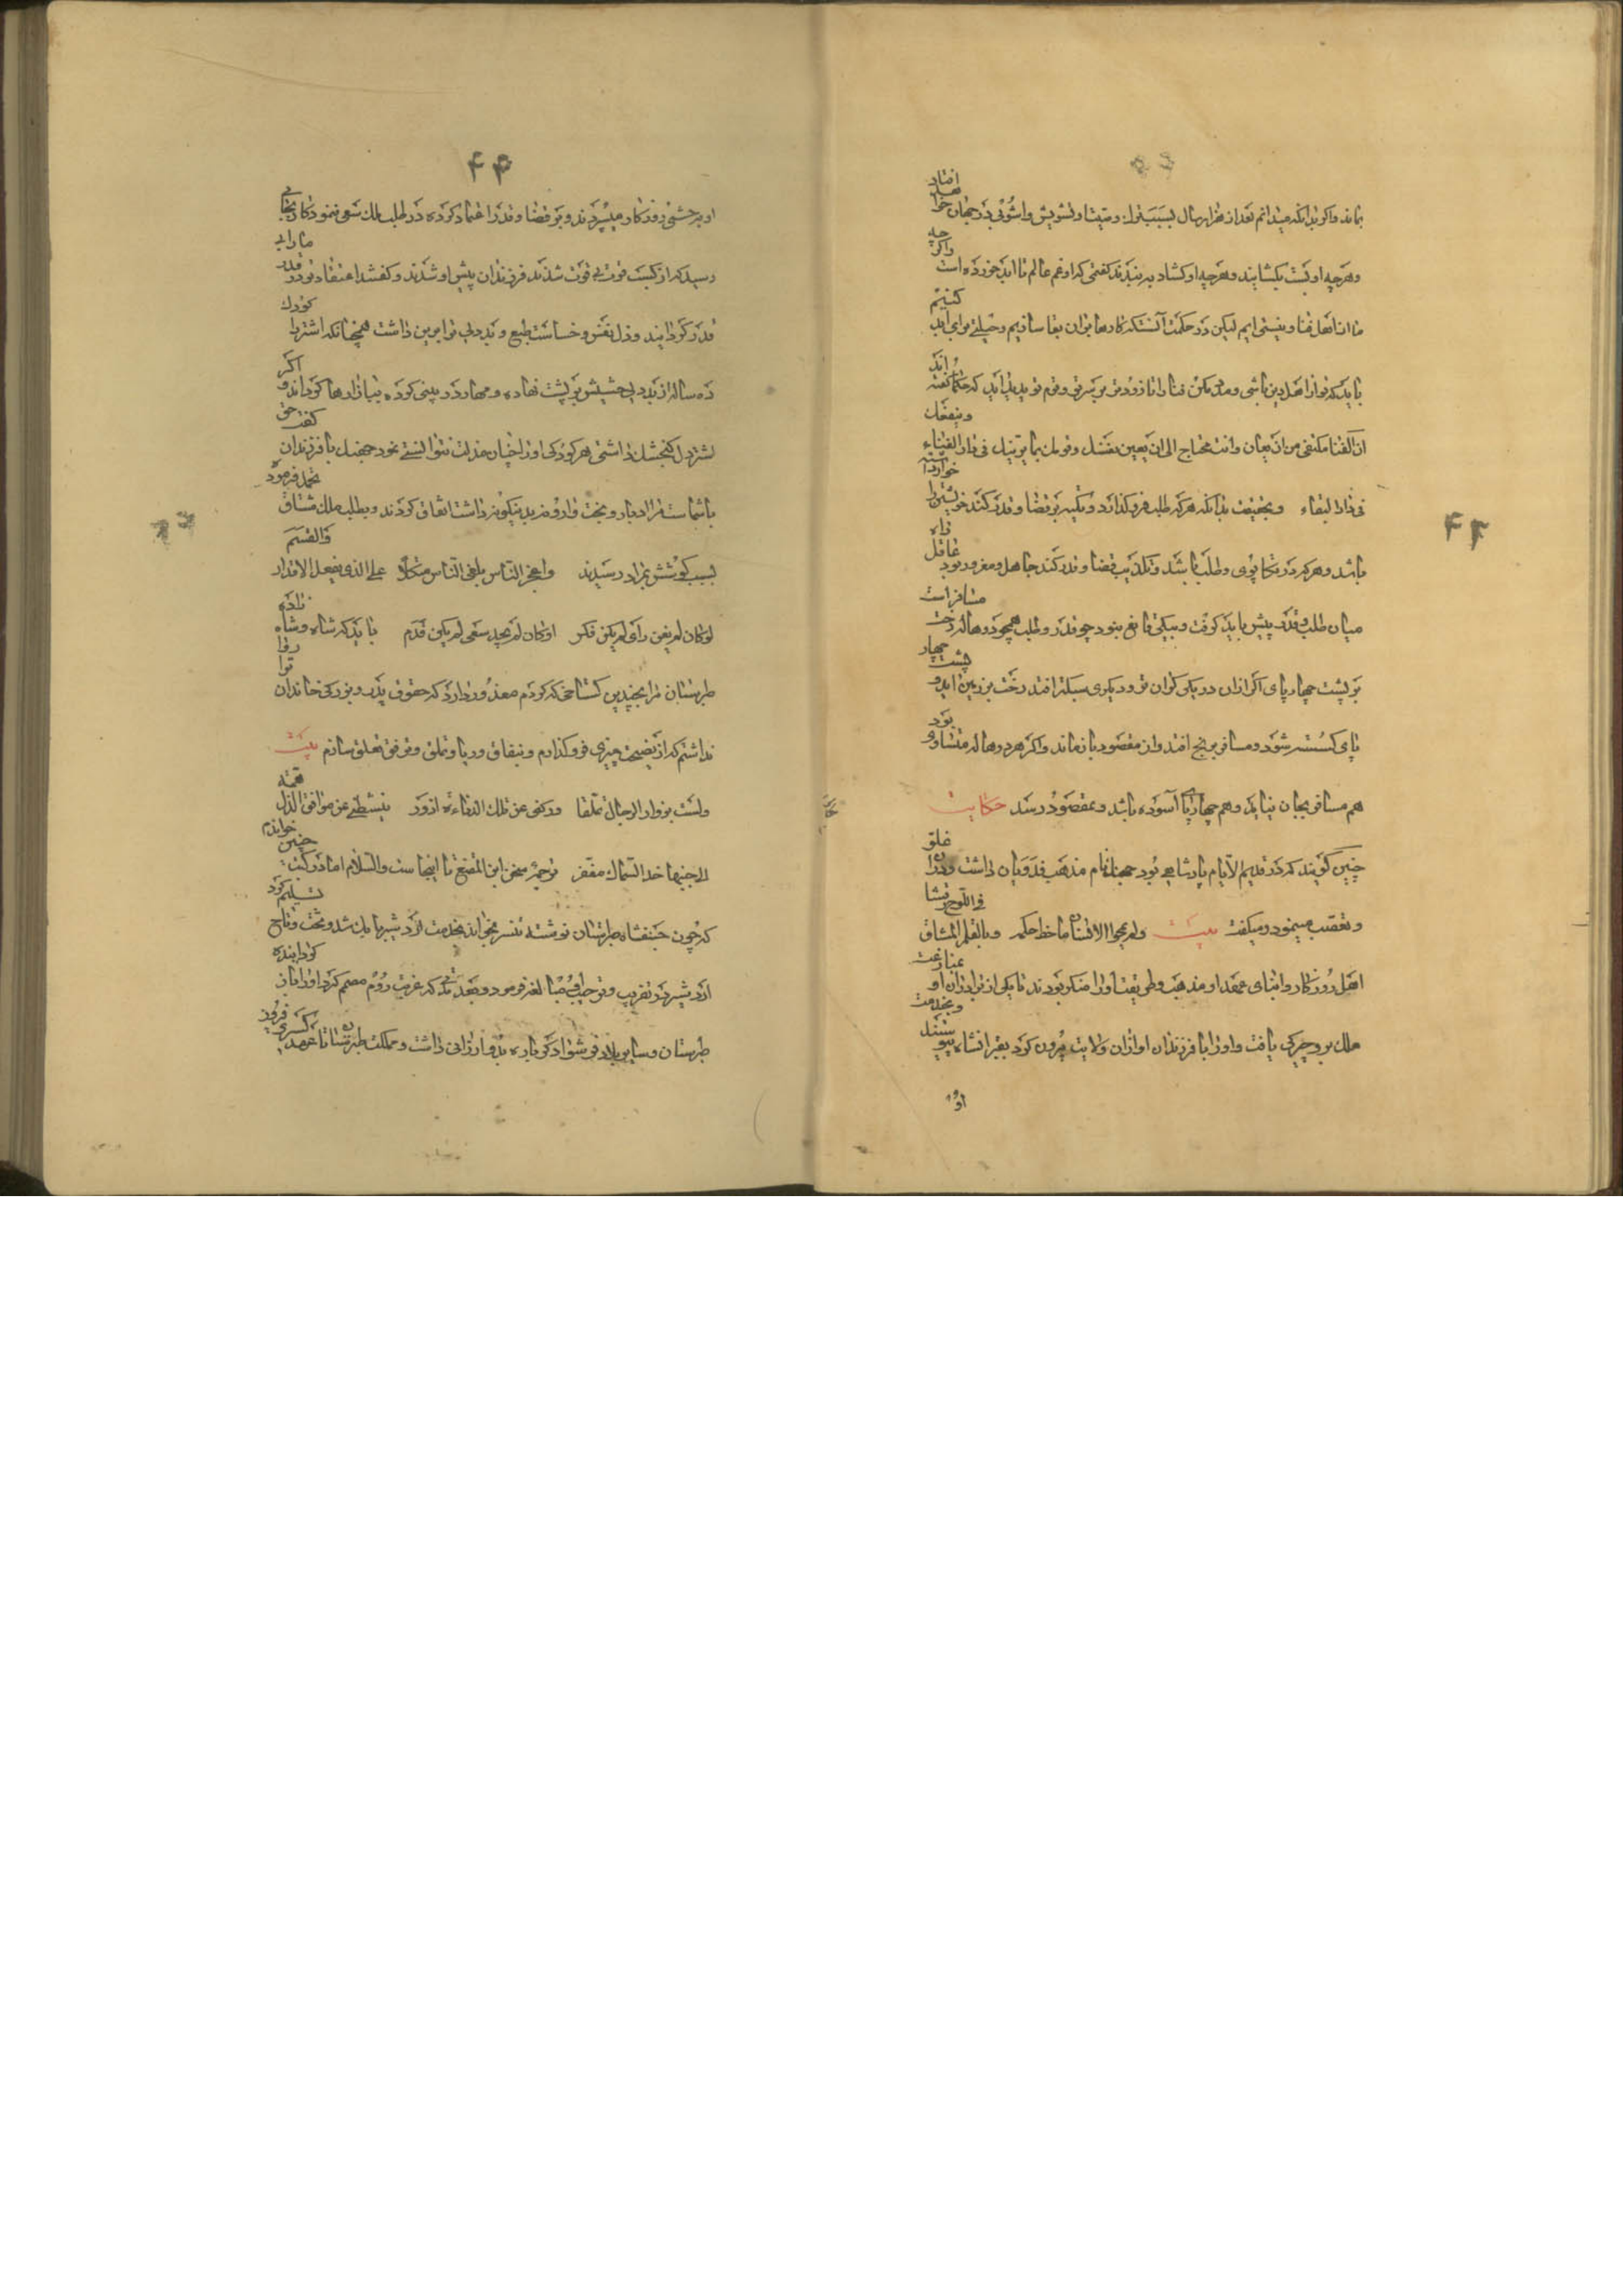 ۴۴
بماند واکر بدانکه میدانم بعد از هزار سال بسبب تو این و تشویش واشوبی در جهان خواهد افتاد
وهرچه او بست بکشایند وهرچه او کشاد به بندند کفتی که او غم عالم تا ابد خورده است واکر چه
ما از اهل فنا و نیستی ایم لیکن در حکمت آنست که کارها برای بقا سازیم وحیلت برای ابد کنیم
باید که تو از اهل این باشی ومدد مکن فنا را تا زودتر بر سر تو وقوم تو آید که حکما کفته اند
ان الفنا مکتفی من ان یعان وانت محتاج الی ان یعین نفسک وقومک بما یزینک فی دار الفناء وینفعک
فی دار البقاء وبحقیقت بدانکه هر که طلب فرو کذارد وتکیه بر قضا وقدر کند خویشتن را خوار داشته
باشد وهر که در تکاپوی وطلب باشد وتکذیب قضا وقدر کند جاهل ومغرور بود عاقل را
میان طلب وقدر پیش باید کرفت و بیکی قانع نبود چه قدر وطلب همچو دو هاله رخت مسافر است
بر پشت چهار پای اکر از آن دو یکی کران تر و دیکری سبکتر افتد رخت بزمین اید و پشت چهار
پای کسسته شود ومسافر برنج افتد واز مقصود باز ماند واکر هر دو هاله متساوی بود
هم مسافر بجان نیاید وهم چهار پا آسوده باشد وبمقصود رسد حکایت
چنین کویند که در قدیم الایام پادشاهی بود جهنل نام مذهب قدریان داشت ودر آن غلو
وتعصب مینمود ومیکفت بیت ولم یمحوا الانسان ما خط حکمه وما القلم المشاق فی اللوح رقشا
اهل روزکار وابنای عهد او مذهب وطریقت او را منکر بودند تا یکی از برادران او بمنازعت
ملک برو چیرکی یافت واو را با فرزندان او از آن ولایت بیرون کرد بقیرانشاه پیوستند وبخدمت
او
۴۴
او بر خشتی روزکار میسپردند وبر قضا وقدر اعتماد کرده در طلب ملک سعی ننمود تا کار بجایی
رسید که از کسب قوت بی قوت شدند فرزندان پیش او شدند وکفتند اعتقاد تو در قدر ما را بی
قدر کردانید وذل نفس وخساست طبع و بددلی ترا برین داشت همچنانکه اشتر را کودک
ده ساله از بددلی حشیش بر پشت نهاده ومهار در بینی کرده ببازارها کرداند و اکر
اشتر دل کنجشک داشتی هر کودکی او را چنان مذلت نتوانستی نمود جهنل با فرزندان کفت حق
با شماست مرا ادبار وبخت وارونه بدین نکونه داشت اتفاق کردند وبطلب ملک مشتاق
بسبب کوشش بمراد رسیدند واعجز الناس ملغی الناس متکلا علی الذی یفعل الاقدار والقسم
لو کان لم یغن رای لم یکن فکر او کان لم یجد سعی لم یکن قدم باید که شاه وشاه زاده
طبرستان مرا بچندین کستاخی که کردم معذور دارد که حقوق پدر وبزرکی خاندان ترا روا
نداشتم که از نصیحت چیزی فرو کذارم وبنفاق وریا وتملق وترفق تعلق سازم بیت
ولست بزوار الرجال تملقا ورکنی عن تلک الدناءة ازور یثبطنی عن موقف الذل همة
الی جنبها خد السماک معفر ترجمۀ سخن ابن المقفع تا اینجا ست والسلام اما در کتب چنین خواندم
که چون جنفشاه طبرستان نوشته تنسر بخواند بخدمت اردشیر بابک شد وتخت وتاج تسلیم کرد
اردشیر در تقریب وترحیب مبالغه فرمود وبعد مدتی که عزیمت روم مصمم کرد او را باز کردانیده
طبرستان وسایر بلاد فرشواذکر بدو ارزانی داشت ومملکت طبرستان تا عهد کسری فیروز